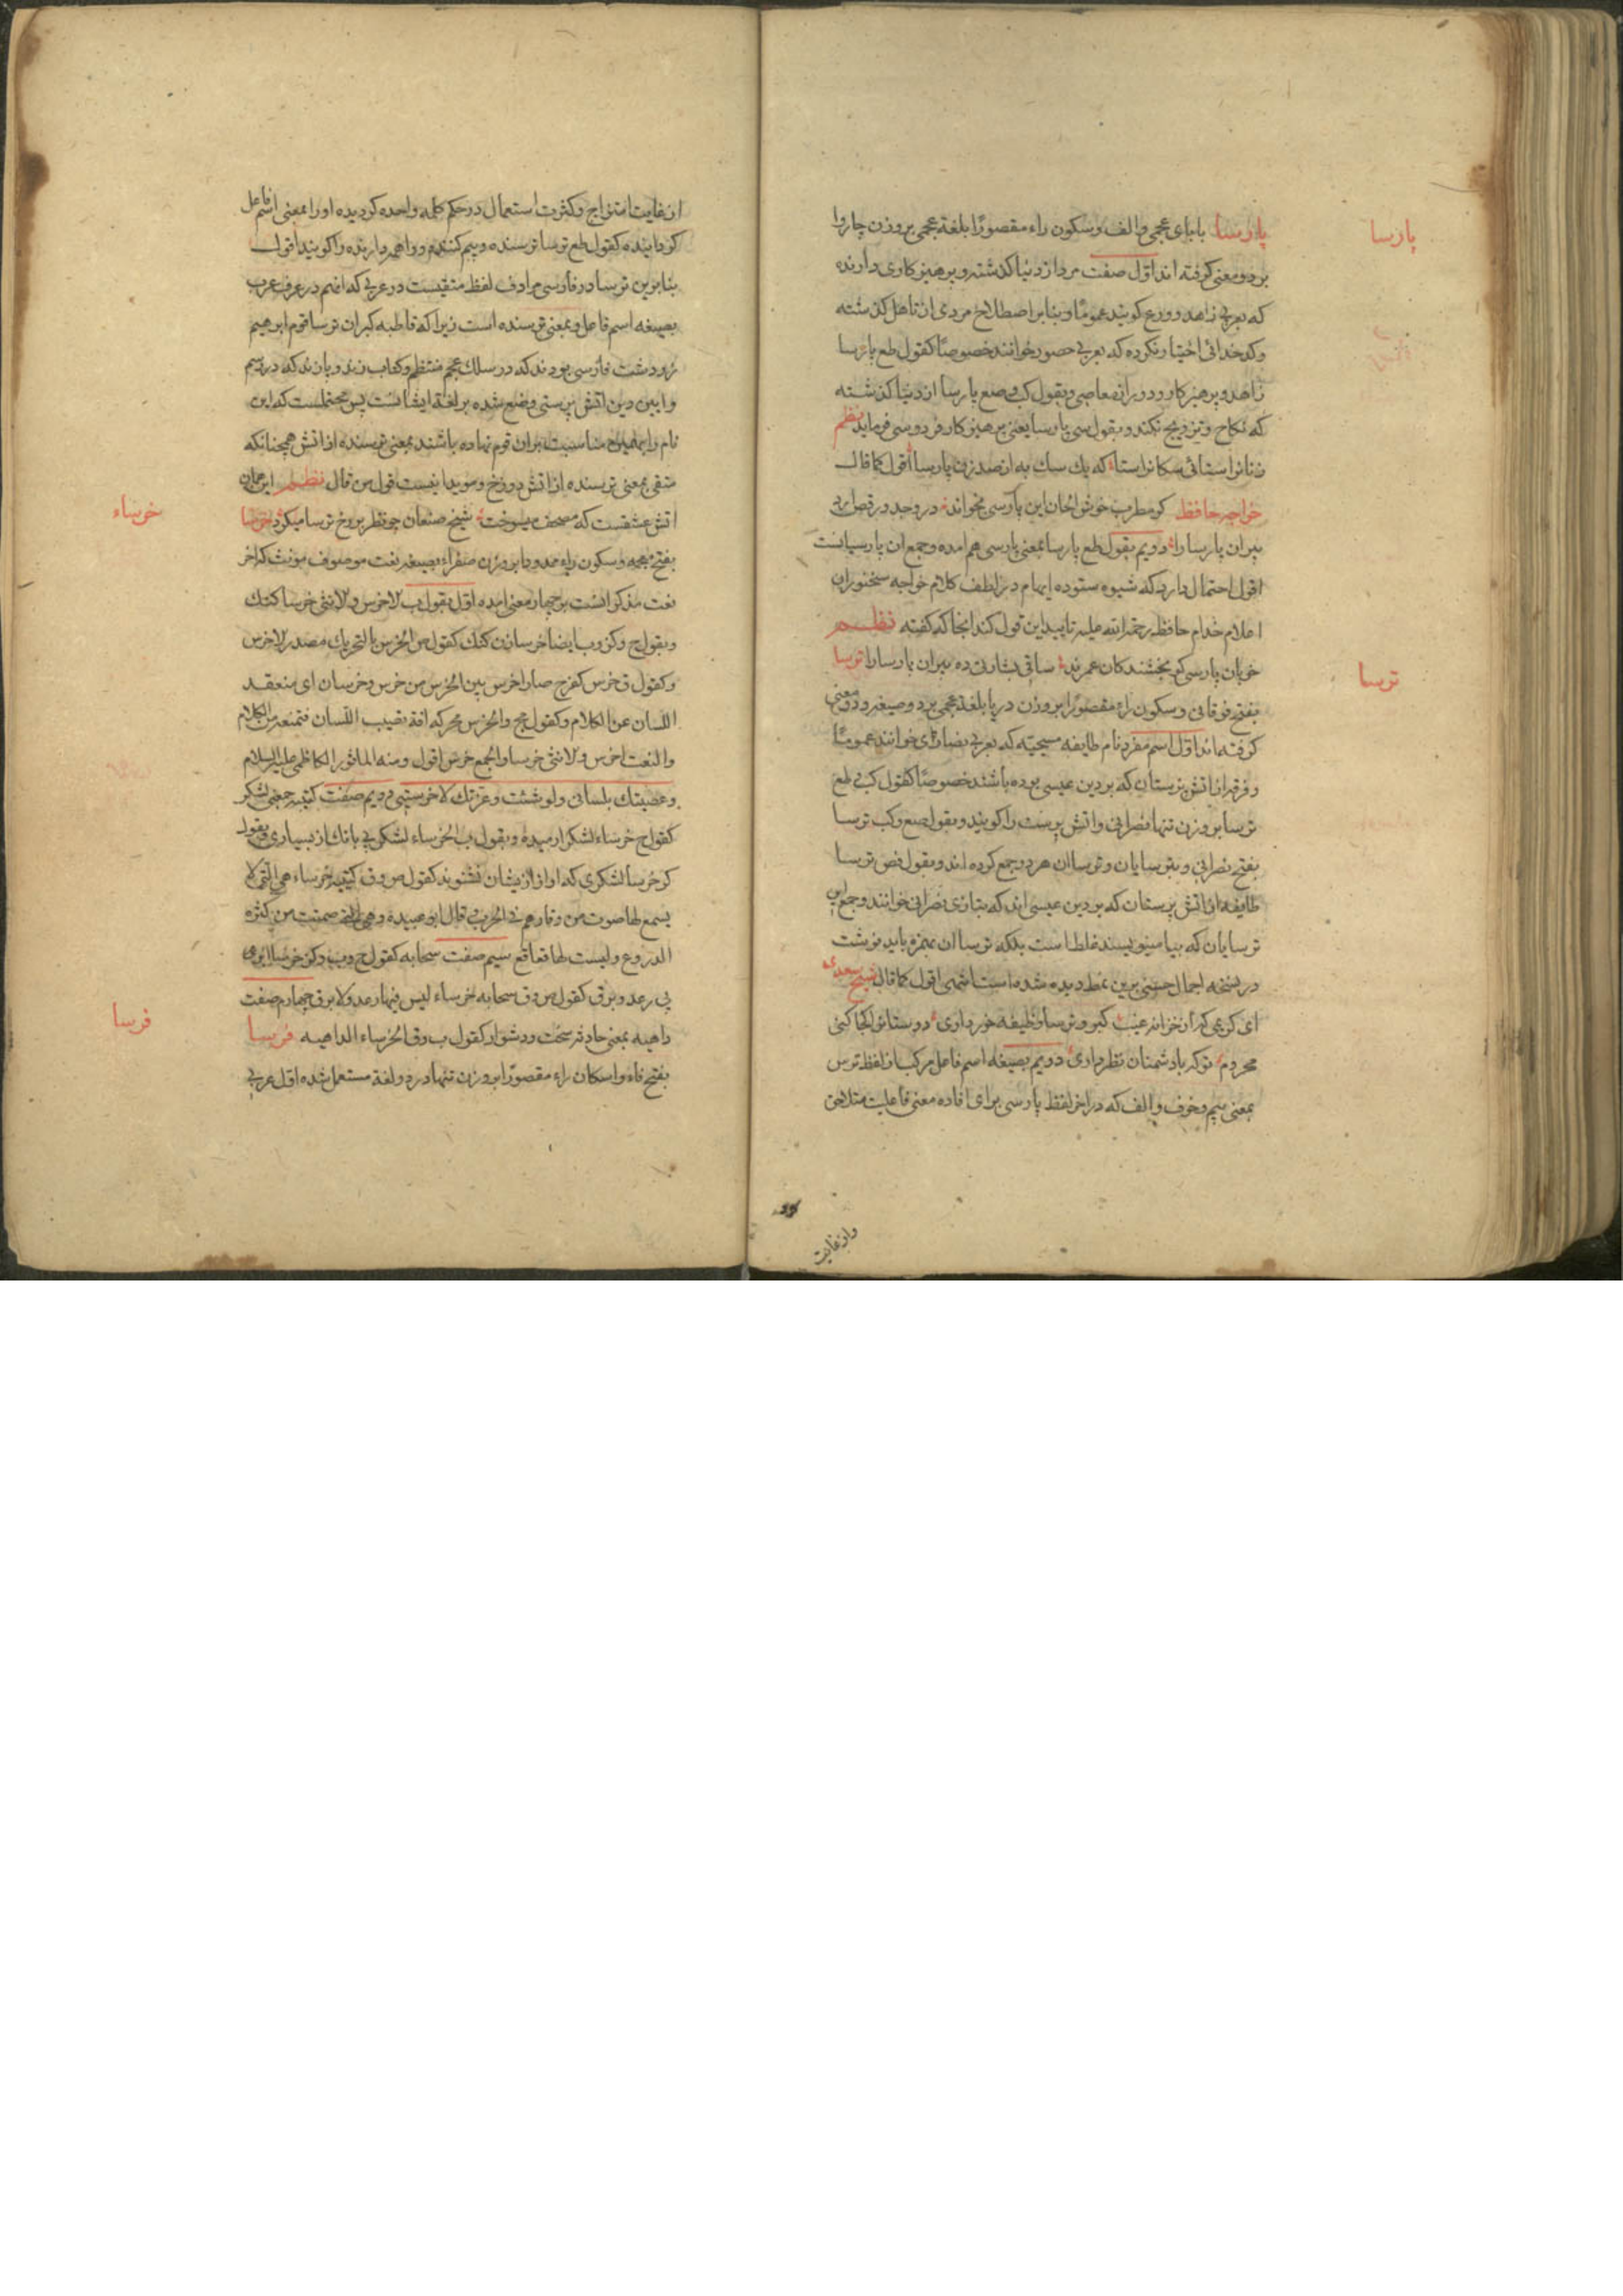 پارسا
پارسا با بای عجمی و الف و سکون راء مقصورًا بلغة عجمی بر وزن چاروا
بر دو معنی کرفته اند اوّل صفت مرد از دنیا کذشته و پرهیز کاری دارنده
که بعربی زاهد و ورع کویند عمومًا و بنابر اصطلاح مردی از تاهل کذشته
وکدخدائی اختیار نکرده که بعربی حصور خوانند خصوصًا کقول طع پارسا
زاهد و پرهیز کار و دور از معاصی و بقول کب و صع پارسا از دنیا کذشته
که نکاح و تزویج نکند و بقول سی پارسا یعنی پرهیز کار فردوسی فرماید نظم
زنانرا ستائی سکانرا ستا که یك سك به از صد زن پارسا اقول کما قال
خواجه حافظ کر مطرب خوش الحان این پارسی بخواند در وجد و رقص ارد
پیران پارسا را دویم بقول طع پارسا بمعنی پارسی هم امده و جمع ان پارسیانست
اقول احتمال دارد که شیوه ستوده ایهام در لطف کلام خواجه سخنوران
اعلام خدام حافظ رحمة الله علیه تایید این قول کند انجا که کفته نظم
خوبان پارسی کو بخشندکان عمرند ساقی بشارتی ده پیران پارسا را ترسا
ترسا
بفتح فوقانی و سکون راء مقصورًا بر وزن دریا بلغة عجمی بر دو صیغه و دو معنی
کرفته اند اوّل اسم مفرد نام طایفه مسیحیّه که بعربی نصارای خوانند عمومًا
و فرقه از اتش پرستان که بر دین عیسی بوده باشند خصوصًا کقول کب طع
ترسا بر وزن تنها نصرانی و اتش پرست را کویند و بقول صع وکب ترسا
بفتح نصرانی و ترسایان و ترساان هر دو جمع کرده اند و بقول فض ترسا
طایفه از اتش پرستان که بر دین عیسی اند که بتازی نصرانی خوانند و جمع این
ترسایان که بیا مینویسند غلط است بلکه ترساان بهمزه باید نوشت
در نسخه اجمال حسنی برین نمط دیده شده است انتهی اقول کما قال شیخ سعدی
ای کریمی که از خزانه غیب کبر و ترسا وظیفه خور داری دوستانرا کجا کنی
محروم تو که با دشمنان نظر داری دویم بصیغه اسم فاعل مرکب از لفظ ترس
بمعنی بیم و خوف و الف که در اخر لفظ پارسی برای افاده معنی فاعلیت متلاحق
و از غایت
از غایت امتزاج و کثرت استعمال در حکم کلمه واحده کردیده او را بمعنی اسم فاعل
کردانیده کقول طع ترسا ترسنده و بیم کننده و واهمه دارنده را کویند اقول
بنابرین ترسا در فارسی مرادف لفظ متقیست در عربی که انهم در عرف عرب
بصیغه اسم فاعل و بمعنی ترسنده است زیرا که قاطبه کبران ترسا قوم ابرهیم
زردشت فارسی بودند که در سلك عجم منتظم و کتاب زند و پازند که در رسم
و ایین دین اتش پرستی وضع شده بر لغة ایشانست پس محتملست که این
نام را بهمین مناسبت بران قوم نهاده باشند بمعنی ترسنده از اتش همچنانکه
متقی بمعنی ترسنده از اتش دوزخ و موید اینست قول من قال نظم این همان
اتش عشقست که مصحف میسوخت شیخ صنعان چو نظر بر رخ ترسا میکرد خرسا
خرساء
بفتح معجمه و سکون راء ممدودا بر وزن صفراء بصیغه نعت موصوف مونث که اخر
نعت مذکر انست بر چهار معنی امده اوّل بقول ب الاخرس و الانثی خرسا کنك
و بقول ج و کز و ب ایضا خرسا زن کنك کقول ص الخرس بالتحریك مصدر الاخرس
و کقول ق خرس کفرح صار اخرس بین الخرس من خرس و خرسان ای منعقد
اللسان عن الکلام و کقول مج و الخرس محرکه افة تصیب اللسان فتمنعه من الکلام
و النعت اخرس و الانثی خرسا و الجمع خرس اقول و منه الماثور الکاظمی علیه السلام
وعصیتك بلسانی ولو شئت وعزتك لاخرستنی دویم صفت کتیبه بمعنی لشکر
کقول ج خرساء لشکر ارمیده و بقول ب الخرساء لشکر بی بانك از بسیاری و بقول
کز خرسا لشکری که اواز ازیشان نشنوند کقول ص و ق کتیبه خرساء هی التی لا
یسمع لها صوت من وقارهم فی الحرب قال ابو عبیده وهی التی صمتت من کثرة
الدروع ولیست لها قعاقع سیم صفت سحابه کقول ج و ب و کز خرسا ابری
بی رعد و برق کقول ص و ق سحابه خرساء لیس فیها رعد ولا برق چهارم صفت
داهیه بمعنی حادثه سخت و دشوار کقول ب و ق الخرساء الداهیه فرسا
فرسا
بفتح فاء و اسکان راء مقصورًا بر وزن تنها در دو لغة مستعمل شده اوّل عربی